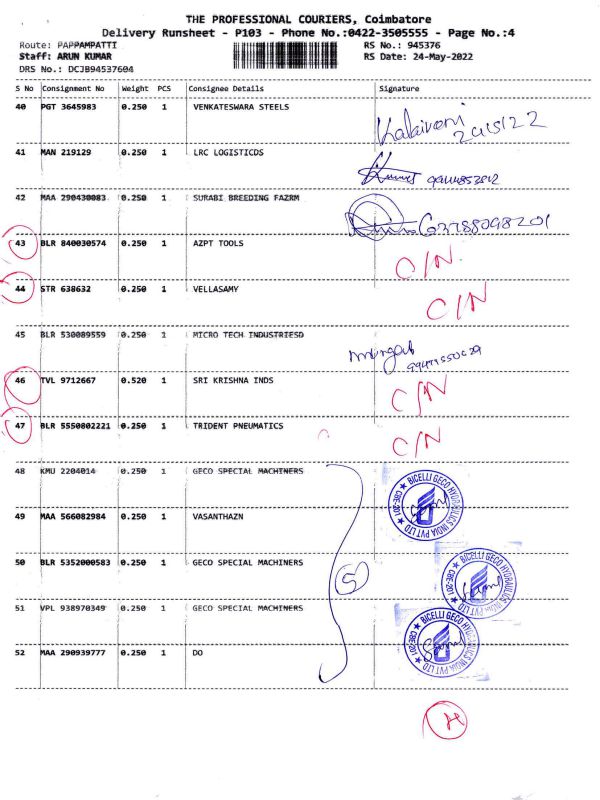 THE PROFESSIONAL COURIERS, Coimbatore
Delivery Runsheet - P103 - Phone No.:0422-3505555 - Page No.:4
Route: PAPPAMPATTI RS No.: 945376
Staff: ARUN KUMAR RS Date: 24-May-2022
DRS No.: DCJB94537604
S No Consignment No Weight PCS Consignee Details Signature
40 PGT 3645983 0.250 1 VENKATESWARA STEELS
Kalaivani
24/5/22
41 MAN 219129 0.250 1 LRC LOGISTICDS
42 MAA 290430083 0.250 1 SURABI BREEDING FAZRM
43 BLR 840030574 0.250 1 AZPT TOOLS C/N.
44 STR 638632 0.250 1 VELLASAMY C/N
45 BLR 530089559 0.250 1 MICRO TECH INDUSTRIESD
46 TVL 9712667 0.520 1 SRI KRISHNA INDS C/N
47 BLR 5550802221 0.250 1 TRIDENT PNEUMATICS C/N
48 KMU 2204014 0.250 1 GECO SPECIAL MACHINERS
BICELLI GECO HYDRAULICS INDIA PVT LTD
49 MAA 566082984 0.250 1 VASANTHAZN
50 BLR 5352000583 0.250 1 GECO SPECIAL MACHINERS
5
BICELLI GECO HYDRAULICS INDIA PVT LTD
51 VPL 938970349 0.250 1 GECO SPECIAL MACHINERS
BICELLI GECO HYDRAULICS INDIA PVT LTD
52 MAA 290939777 0.250 1 DO